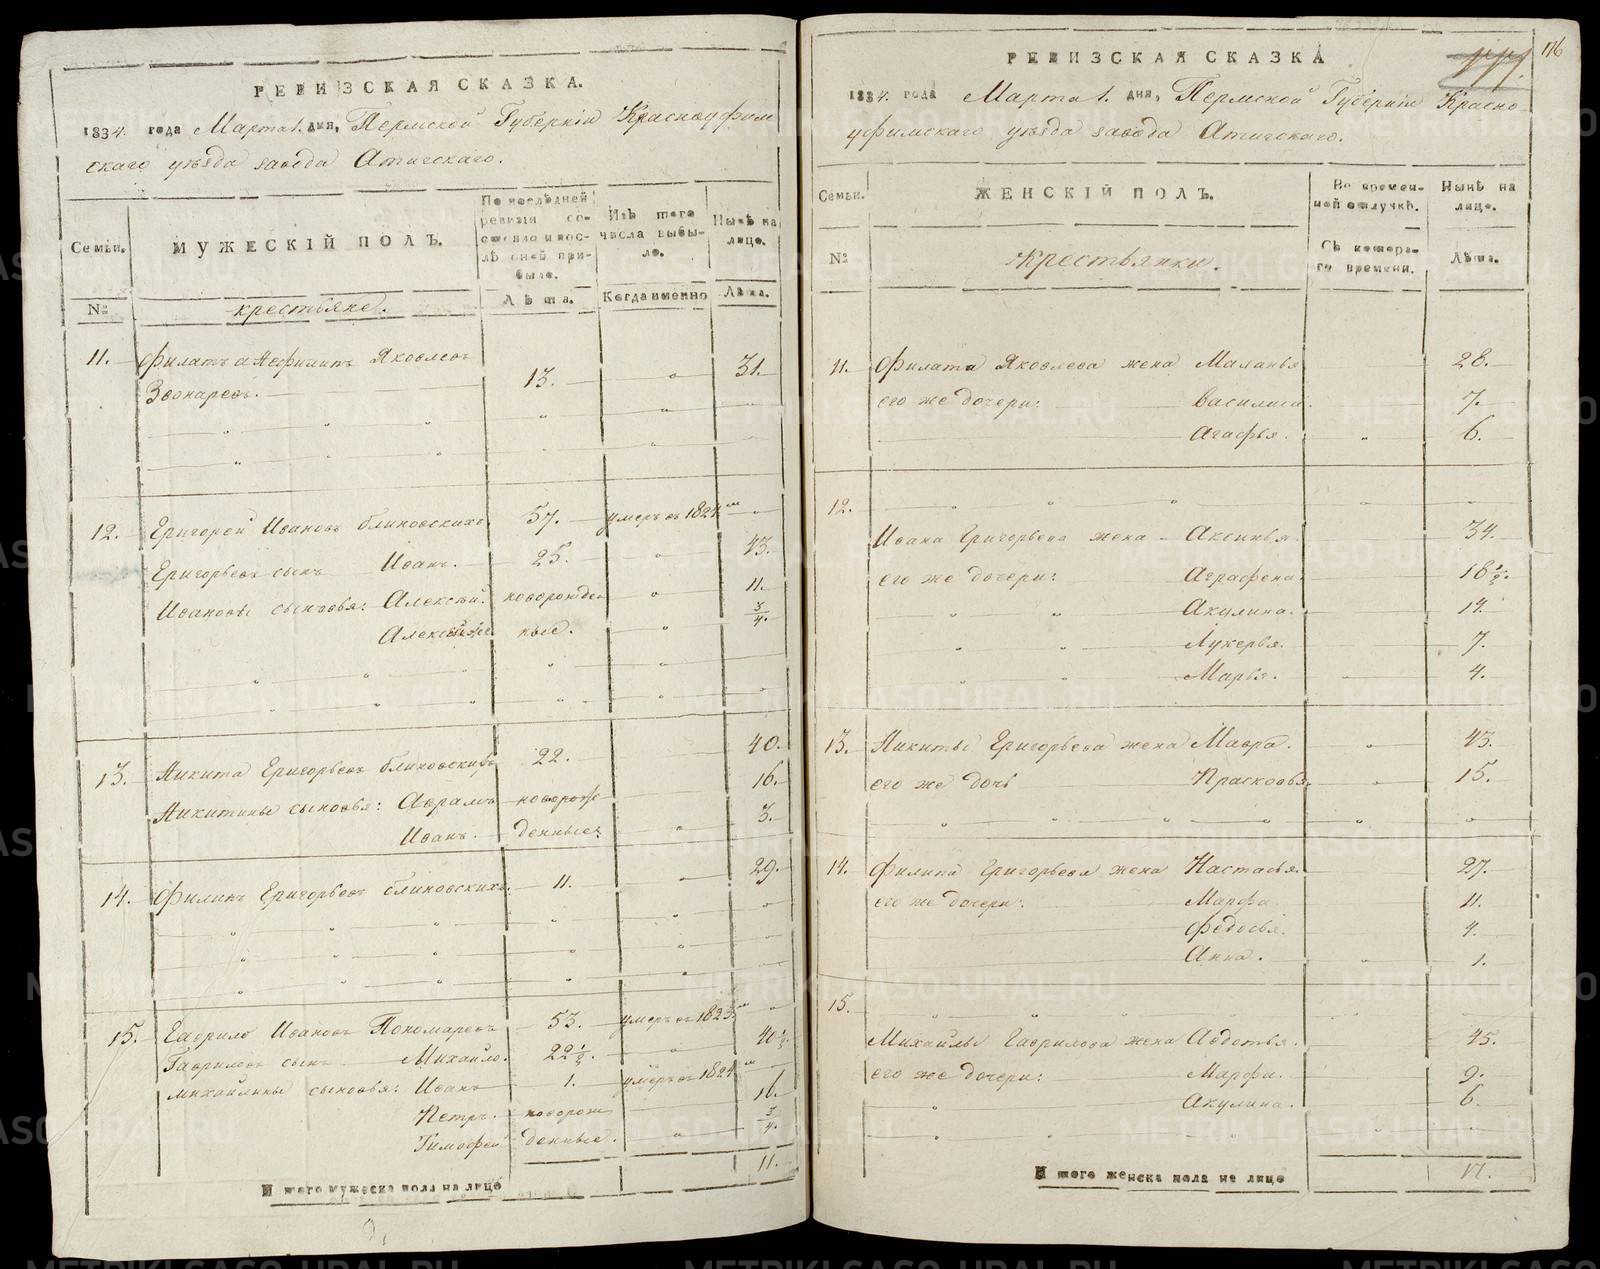 РЕВИЗСКАЯ СКАЗКА.
1834. года Марта 1. дня, Пермской Губерніи Красноуфим
скаго уѣзда завода Атигскаго.
Семьи. МУЖЕСКІЙ ПОЛЪ. По послѣдней ревизіи состояло и послѣ оной прибыло. Изъ того числа выбыло. Нынѣ на лицо.
№ крестьяне. Лѣта. Когда именно Лѣта.
11. Филатъ Яковлевъ 13. 31.
Звонаревъ.
12. Григорей Ивановъ Блиновскихъ 57. умеръ въ 1824мъ
Григорьевъ сынъ Иванъ. 25. 43.
Ивановы сыновья: Алексѣй. новорожден 11.
ные. 3/4.
13. Никита Григорьевъ Блиновскихъ 22. 40.
Никитины сыновья: Аврамъ новорож 16.
Иванъ. денные 3.
14. Филипъ Григорьевъ Блиновскихъ. 11. 29.
15. Гаврило Ивановъ Пономаревъ 53. умеръ въ 1823м
Гавриловъ сынъ Михайло. 22 1/2. 40 1/2.
Михайлины сыновья: Иванъ 1. умеръ въ 1824м
Петръ. новорож 16.
Тимофей денные. 3/4.
Итого мужеска пола на лицо 11.
РЕВИЗСКАЯ СКАЗКА
116
1834. года Марта 1. дня, Пермской Губерніи Красно
уфимскаго уѣзда завода Атигскаго.
Семьи. ЖЕНСКІЙ ПОЛЪ. Во временной отлучкѣ. Нынѣ на лицо.
№ крестьянки. Съ котораго времени. Лѣта.
11. Филата Яковлева жена Маланья 28.
его же дочери: Василиса. 7.
Агафья. 6.
12.
Ивана Григорьева жена Аксинья. 34.
его же дочери: Аграфена. 18 1/2.
Акулина. 14.
Лукерья. 7.
Марья. 4.
13. Никиты Григорьева жена Мавра. 43.
его же дочь Прасковья. 15.
14. Филипа Григорьева жена Настасья. 27.
его же дочери: Марфа 11.
Федосья. 4.
Анна. 1.
15.
Михайлы Гаврилова жена Авдотья. 45.
его же дочери: Марфа. 9.
Акулина. 6.
Итого женска пола на лицо 17.
METRIKI.GASO-URAL.RU